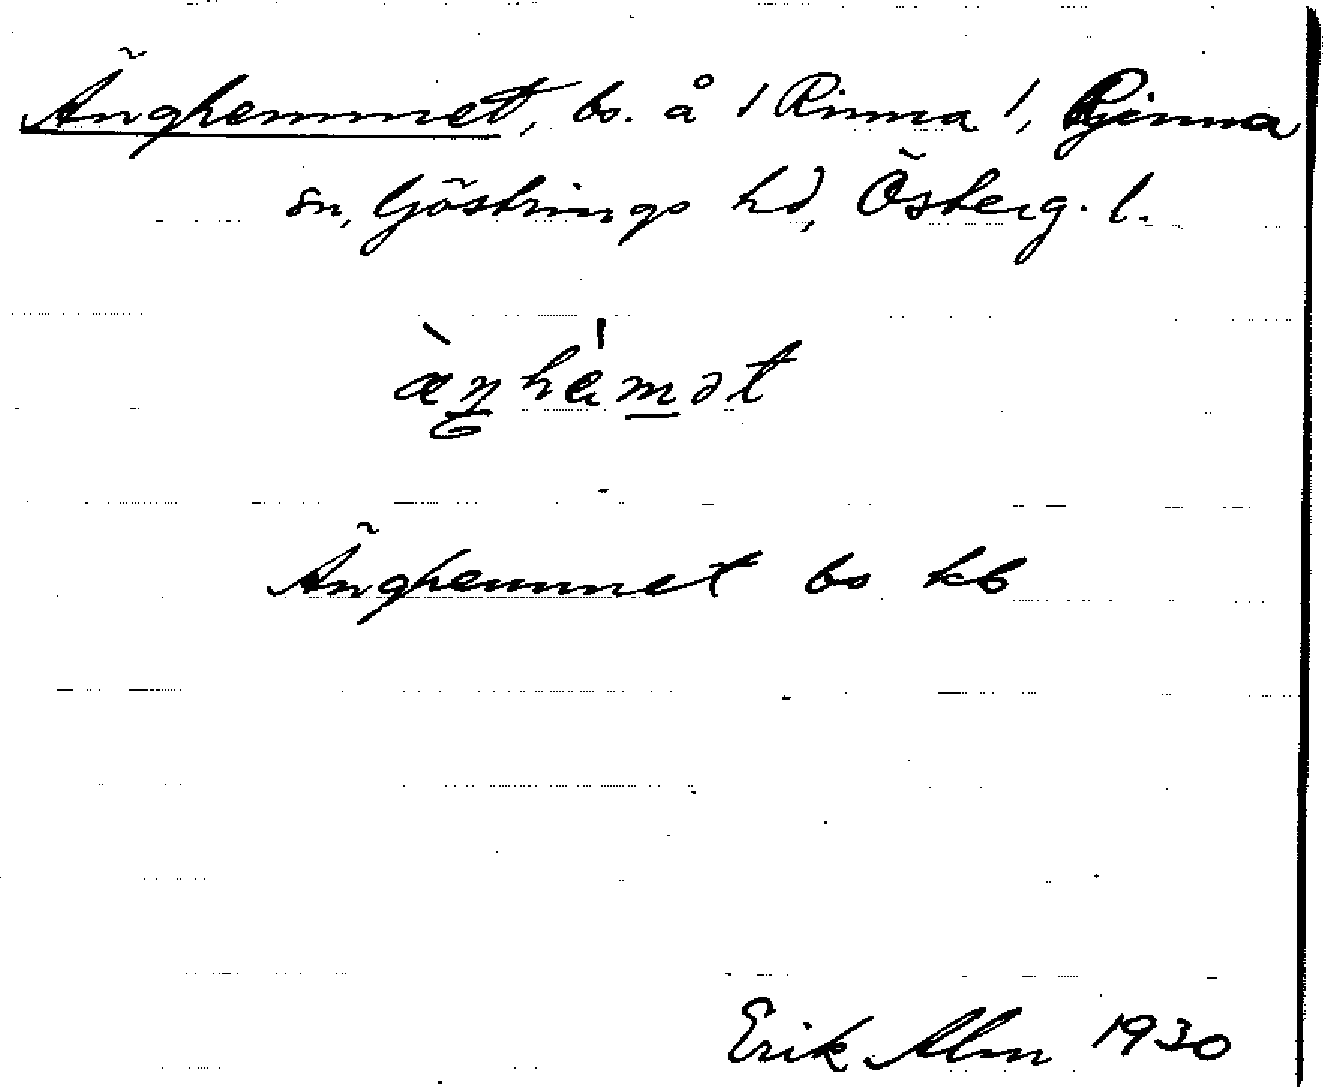 Änghemmet, bs. å / Rinna /, Rinna
sn, Göstrings hd, Österg. l.
æ̀ŋhèmət
Änghemmet bs kb
Erik Alm 1930